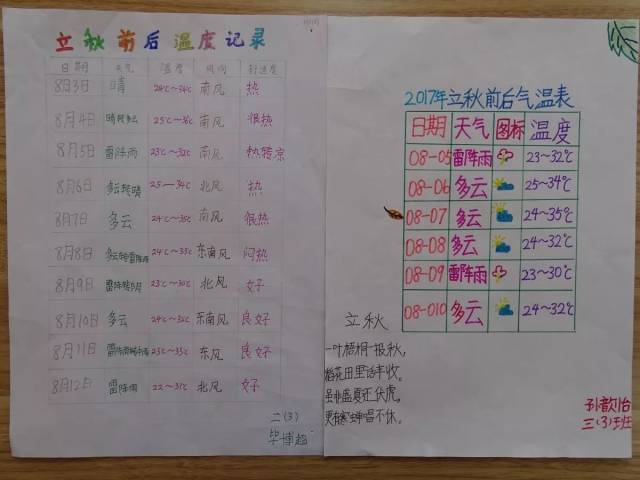 立秋前后温度记录
日期 天气 温度 风向 舒适度
8月3日 晴 24℃~34℃ 南风 热
8月4日 25℃~ 南风 很热
8月5日 雷阵雨 23℃~32℃ 南风 热转凉
8月6日 多云转晴 25~34℃ 北风 热
8月7日 多云 24℃~35℃ 南风 很热
8月8日 24℃~33℃ 东南风 闷热
8月9日 雷阵转阴 23℃~30℃ 北风 好
8月10日 多云 24℃~32℃ 东南风 良好
8月11日 23℃~33℃ 东风 良好
8月12日 雷阵雨 22~31℃ 北风 好
二(3)
毕博超
2017年立秋前后气温表
日期 天气 图标 温度
08-05 雷阵雨 23~32℃
08-06 多云 25~34℃
08-07 多云 24~35℃
08-08 多云 24~32℃
08-09 雷阵雨 23~30℃
08-010 多云 24~32℃
立秋
一叶梧桐一报秋,
稻花田里话丰收。
虽非盛夏还伏虎,
更有寒蝉唱不休。
孙歆怡
三(3)班